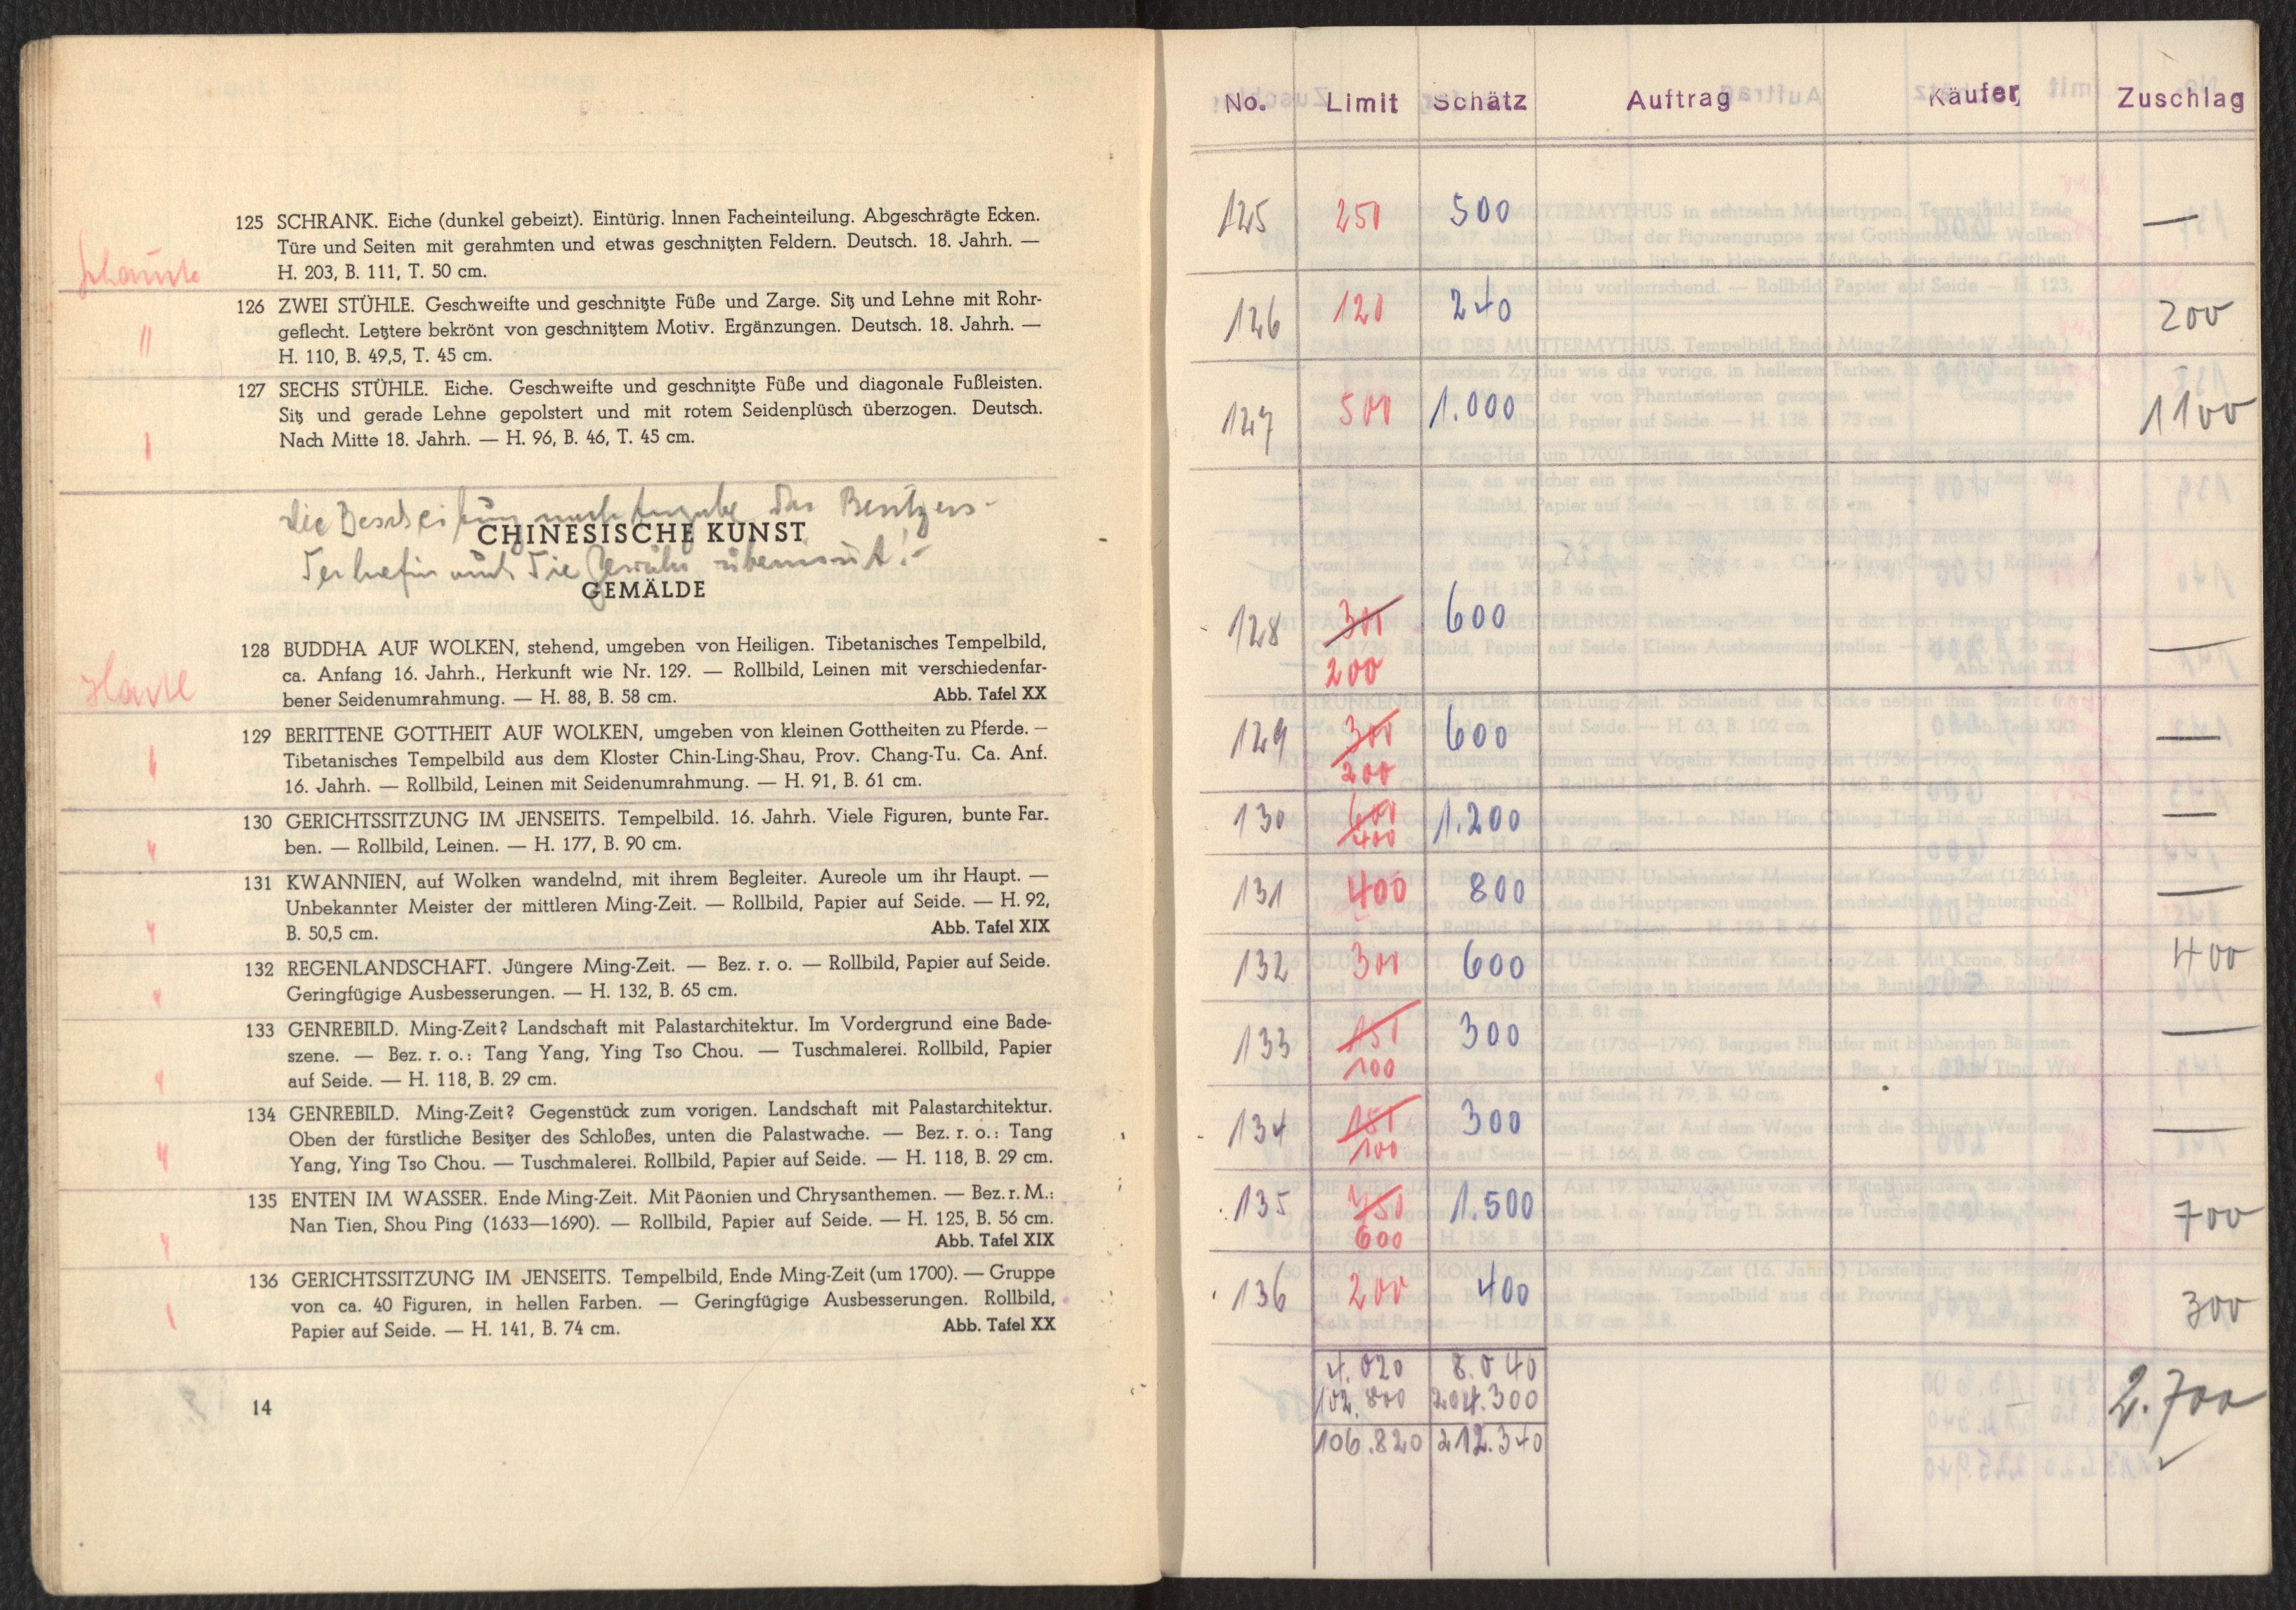 125 SCHRANK. Eiche (dunkel gebeizt). Eintürig. Innen Facheinteilung. Abgeschrägte Ecken.
Türe und Seiten mit gerahmten und etwas geschnitzten Feldern. Deutsch. 18. Jahrh. —
H. 203, B. 111, T. 50 cm.
126 ZWEI STÜHLE. Geschweifte und geschnitzte Füße und Zarge. Sitz und Lehne mit Rohr-
geflecht. Letztere bekrönt von geschnitztem Motiv. Ergänzungen. Deutsch. 18. Jahrh. —
H. 110, B. 49,5, T. 45 cm.
127 SECHS STÜHLE. Eiche. Geschweifte und geschnitzte Füße und diagonale Fußleisten.
Sitz und gerade Lehne gepolstert und mit rotem Seidenplüsch überzogen. Deutsch.
Nach Mitte 18. Jahrh. — H. 96, B. 46, T. 45 cm.
die Beschreibung nach Angabe des Besitzers -
CHINESISCHE KUNST
die
GEMÄLDE
128 BUDDHA AUF WOLKEN, stehend, umgeben von Heiligen. Tibetanisches Tempelbild,
ca. Anfang 16. Jahrh., Herkunft wie Nr. 129. — Rollbild, Leinen mit verschiedenfar-
bener Seidenumrahmung. — H. 88, B. 58 cm. Abb. Tafel XX
129 BERITTENE GOTTHEIT AUF WOLKEN, umgeben von kleinen Gottheiten zu Pferde. —
Tibetanisches Tempelbild aus dem Kloster Chin-Ling-Shau, Prov. Chang-Tu. Ca. Anf.
16. Jahrh. — Rollbild, Leinen mit Seidenumrahmung. — H. 91, B. 61 cm.
130 GERICHTSSITZUNG IM JENSEITS. Tempelbild. 16. Jahrh. Viele Figuren, bunte Far-
ben. — Rollbild, Leinen. — H. 177, B. 90 cm.
131 KWANNIEN, auf Wolken wandelnd, mit ihrem Begleiter. Aureole um ihr Haupt. —
Unbekannter Meister der mittleren Ming-Zeit. — Rollbild, Papier auf Seide. — H. 92,
B. 50,5 cm. Abb. Tafel XIX
132 REGENLANDSCHAFT. Jüngere Ming-Zeit. — Bez. r. o. — Rollbild, Papier auf Seide.
Geringfügige Ausbesserungen. — H. 132, B. 65 cm.
133 GENREBILD. Ming-Zeit? Landschaft mit Palastarchitektur. Im Vordergrund eine Bade-
szene. — Bez. r. o.: Tang Yang, Ying Tso Chou. — Tuschmalerei. Rollbild, Papier
auf Seide. — H. 118, B. 29 cm.
134 GENREBILD. Ming-Zeit? Gegenstück zum vorigen. Landschaft mit Palastarchitektur.
Oben der fürstliche Besitzer des Schloßes, unten die Palastwache. — Bez. r. o.: Tang
Yang, Ying Tso Chou. — Tuschmalerei. Rollbild, Papier auf Seide. — H. 118, B. 29 cm.
135 ENTEN IM WASSER. Ende Ming-Zeit. Mit Päonien und Chrysanthemen. — Bez. r. M.:
Nan Tien, Shou Ping (1633—1690). — Rollbild, Papier auf Seide. — H. 125, B. 56 cm.
Abb. Tafel XIX
136 GERICHTSSITZUNG IM JENSEITS. Tempelbild, Ende Ming-Zeit (um 1700). — Gruppe
von ca. 40 Figuren, in hellen Farben. — Geringfügige Ausbesserungen. Rollbild,
Papier auf Seide. — H. 141, B. 74 cm. Abb. Tafel XX
14
No. Limit Schätz Auftrag Käufer Zuschlag
125 250 500 —
126 120 240 200
127 500 1.000 1100
128 300 600 —
200
129 300 600 —
200
130 600 1.200 —
400
131 400 800 —
132 300 600 400
133 150 300 —
100
134 150 300 —
100
135 750 1.500 700
600
136 200 400 300
4.020 8.040
102.800 204.300
106.820 212.340
2.700